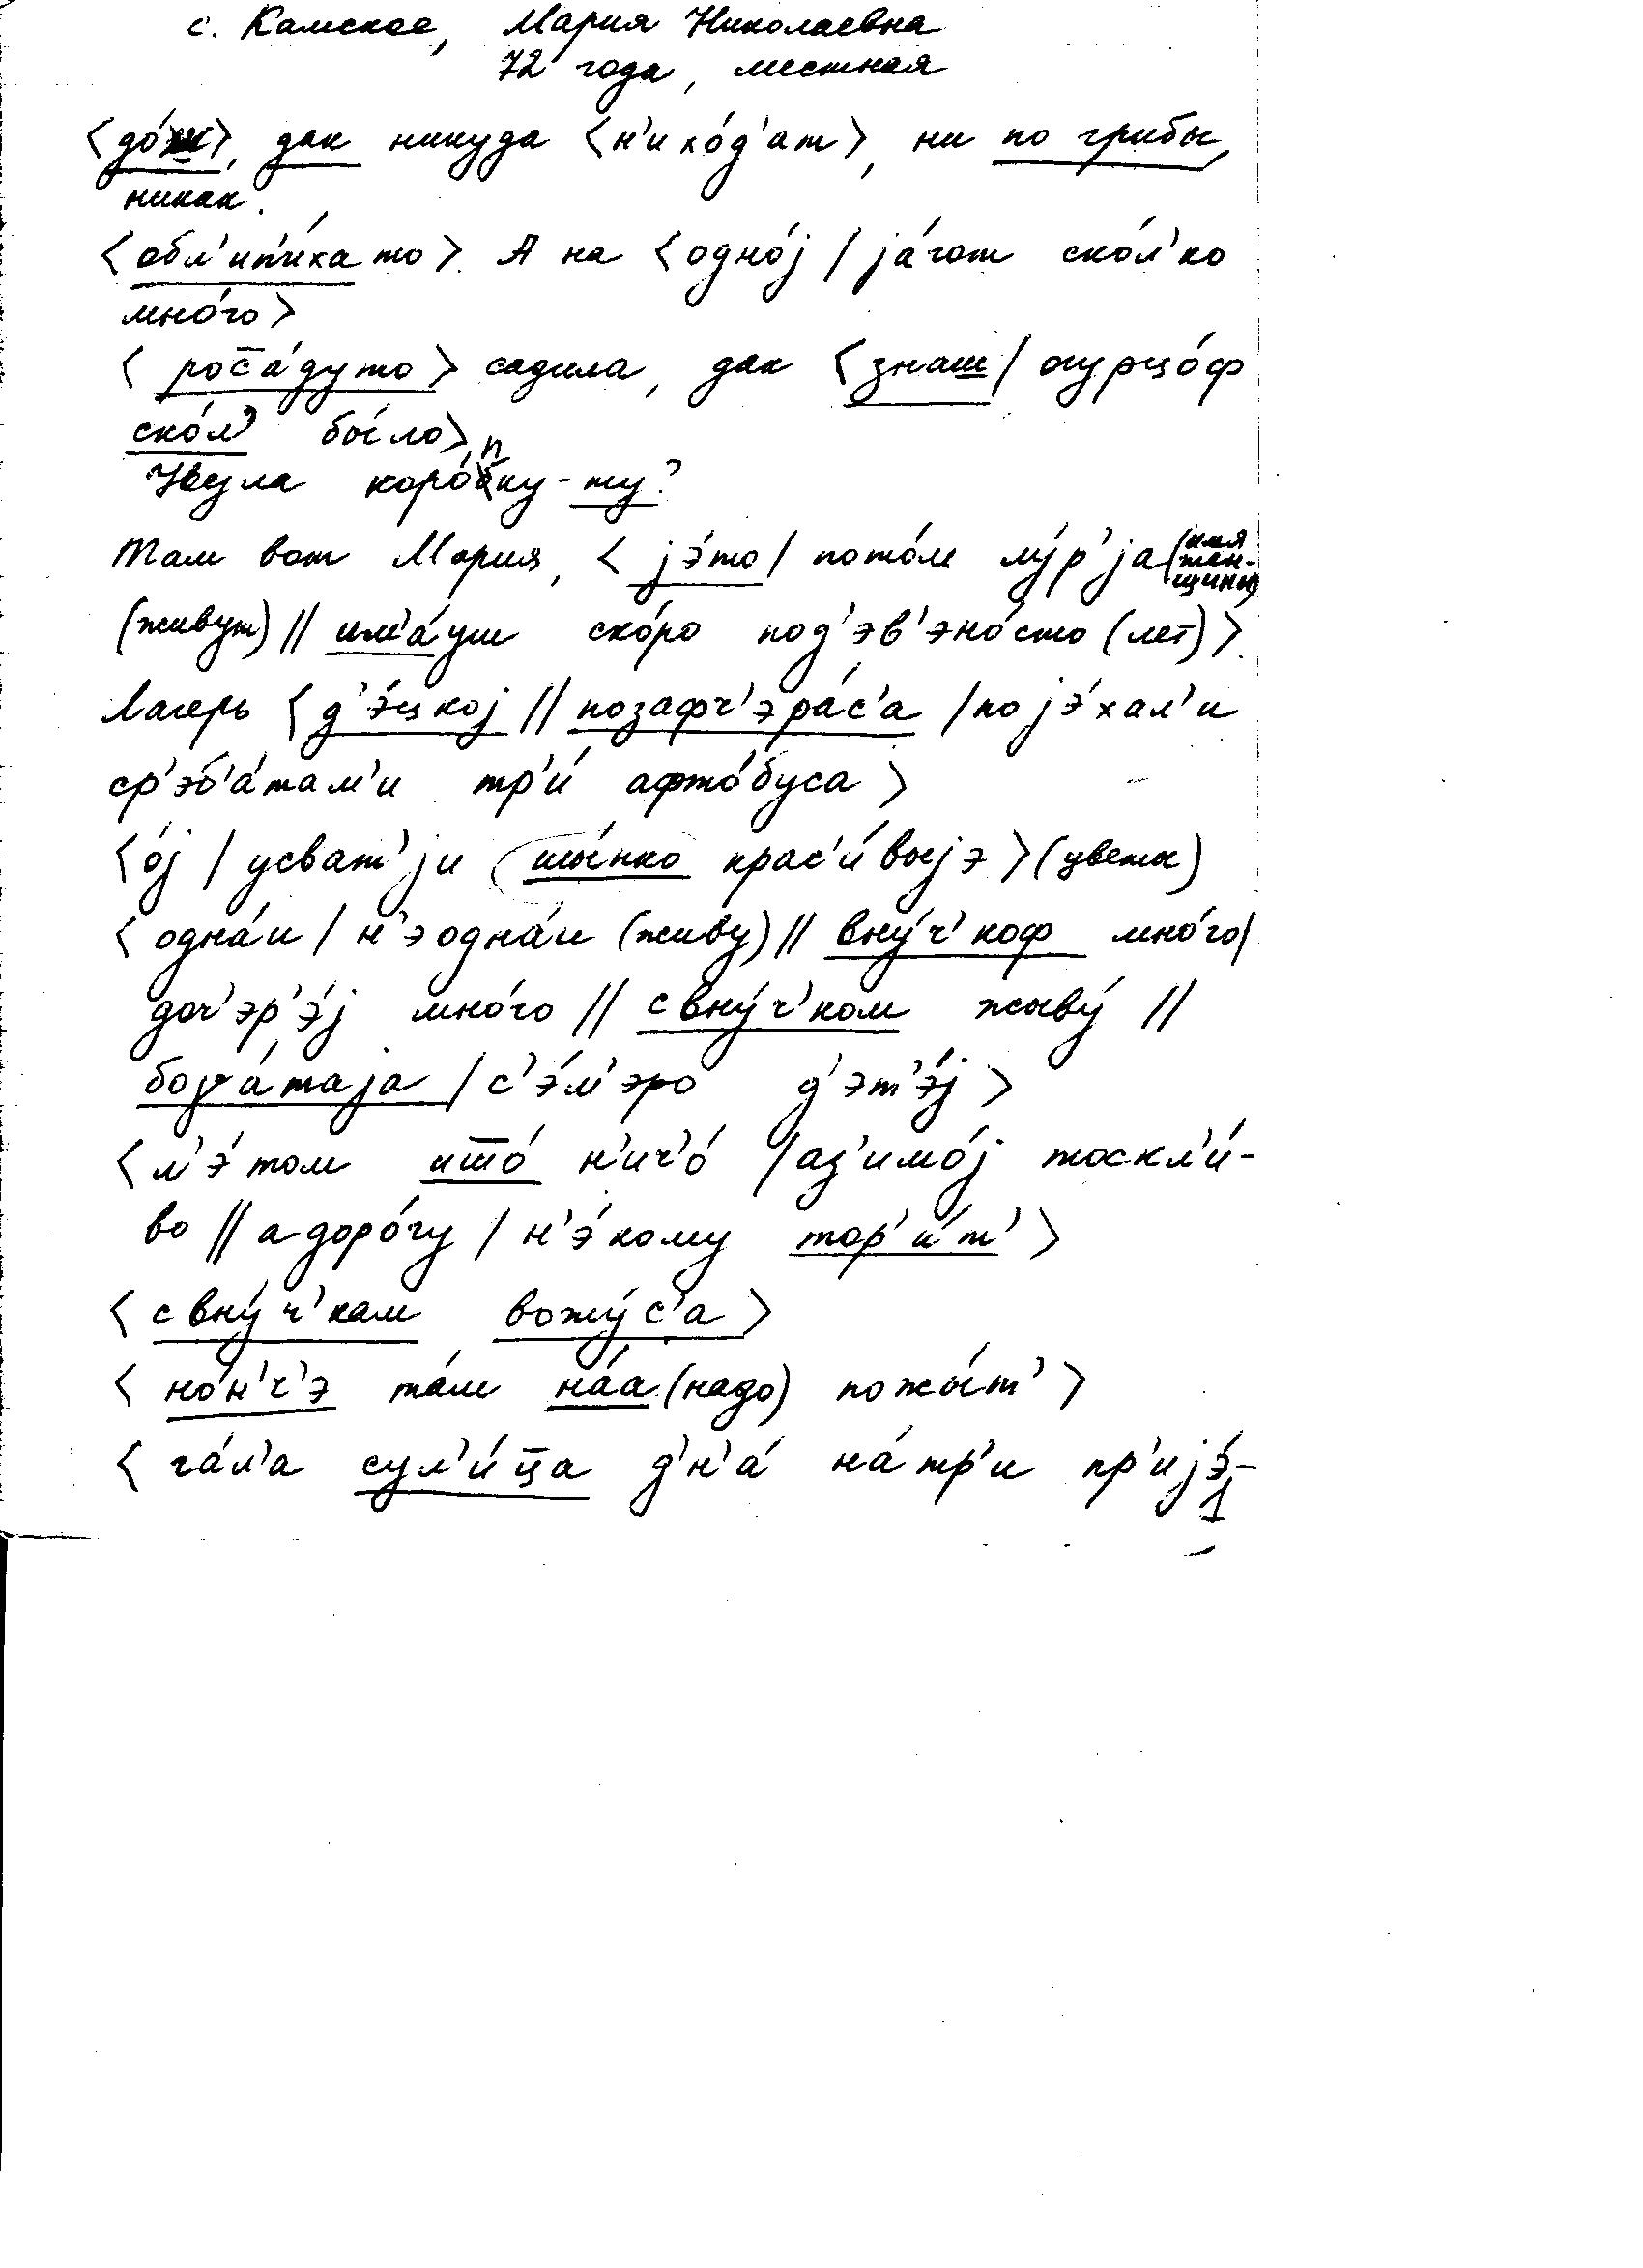 с. Камское, Мария Николаевна
72 года, местная
<до́ш>, дак никуда <н'ихо́д'ат>, ни по грибы,
никак.
<обл'ип'и́хато>. А на <одно́j / jа́гот ско́л'ко
мно́го>
<рос̄а́дуто> садила, дак <знаш / огурцо́ф
ско́л' бы́ло>
коро́пку-ту?
Там вот Мария, <jэ́то / пото́м му́р'jа (имя женщины)
(живут) // им'а́ уш ско́ро под'эв'эно́сто (лет)>.
Лагерь <д'э́цкоj // позафч'эра́с'а / поjэ́хал'и
ср'эб'а́там'и тр'и́ афто́буса>
<о́j / усват'jи шы́пко крас'и́выjэ> (цветы)
<одна́и / н'эодна́и (живу) // вну́ч'коф мно́го /
доч'эр'э́j мно́го // свну́ч'ком жыву́ //
бога́таjа / с'э́м'эро д'эт'э́j>
<л'э́том што́ н'ич'о́ / аз'имо́j тоскл'и́-
во // адоро́гу / н'э́кому тор'и́т'>
<свну́ч'кам вожу́с'а>
<но́н'ч'э та́м на́а (надо) пожы́т'>
<га́л'а сул'и́ц̄а д'н'а́ на́тр'и пр'иjэ́-
1